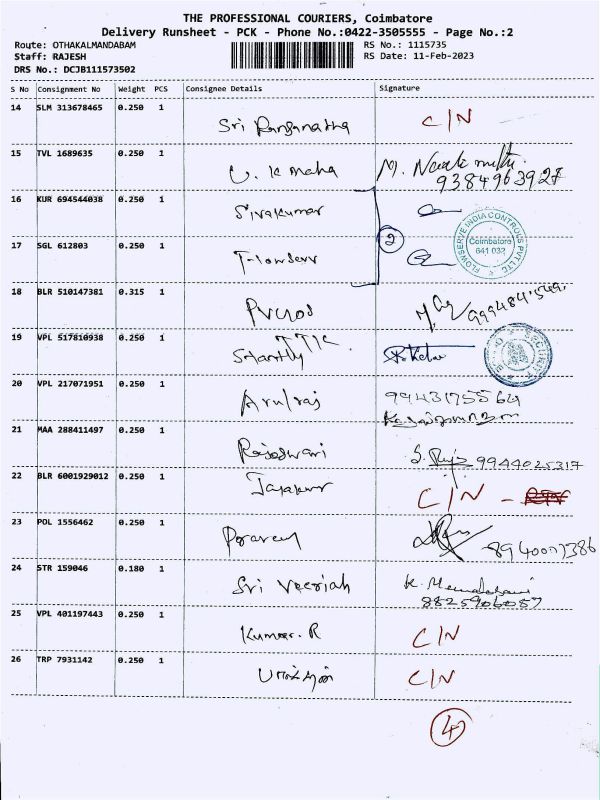 THE PROFESSIONAL COURIERS, Coimbatore
Delivery Runsheet - PCK - Phone No.:0422-3505555 - Page No.:2
Route: OTHAKALMANDABAM RS No.: 1115735
Staff: RAJESH RS Date: 11-Feb-2023
DRS No.: DCJB111573502
S No Consignment No Weight PCS Consignee Details Signature
14 SLM 313678465 0.250 1 Sri Ranganatha C/N
15 TVL 1689635 0.250 1 U.K Maha M.
9384963927
16 KUR 694544038 0.250 1 Sivakumar
2
FLOWSERVE INDIA CONTROLS PVT LTD
Coimbatore
641 032
17 SGL 612803 0.250 1 Flowserv
18 BLR 510147381 0.315 1
19 VPL 517810938 0.250 1
SECURITY
20 VPL 217071951 0.250 1 Arulraj 9943175564
21 MAA 288411497 0.250 1 Rajeswari S. 9944025317
22 BLR 6001929012 0.250 1 Jayakumar C/N -
23 POL 1556462 0.250 1 Praveen 8940007386
24 STR 159046 0.180 1 Sri Veeriah K.
8825906057
25 VPL 401197443 0.250 1 Kumar. R C/N
26 TRP 7931142 0.250 1 C/N
4